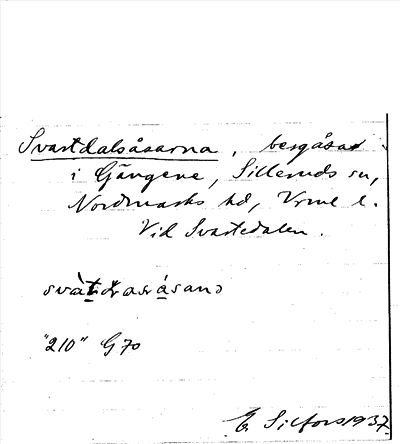 Svartdalsåsarna, bergåsar
i Gängene, Silleruds sn,
Nordmarks hd, Vrml l.
Vid Svartedalen.
"210" G70
E. Silfors 1937.